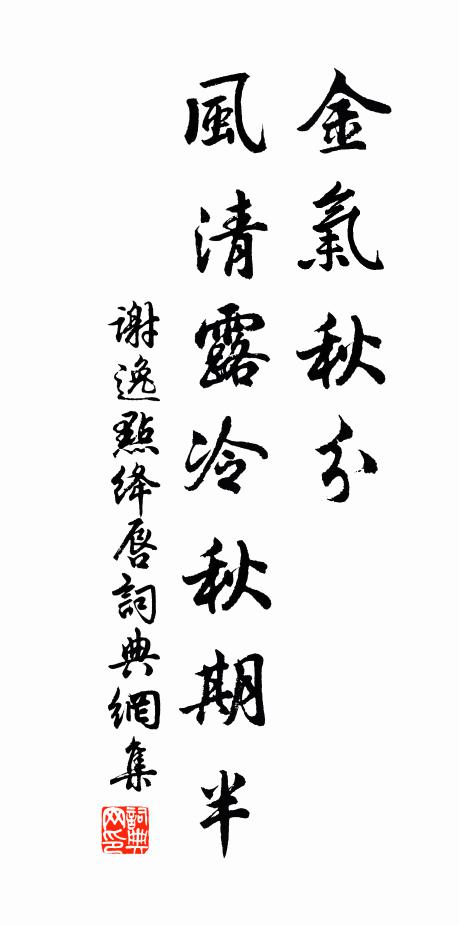 金氣秋分
風清露冷秋期半
謝逸點絳唇詞典網集
詞典
网印